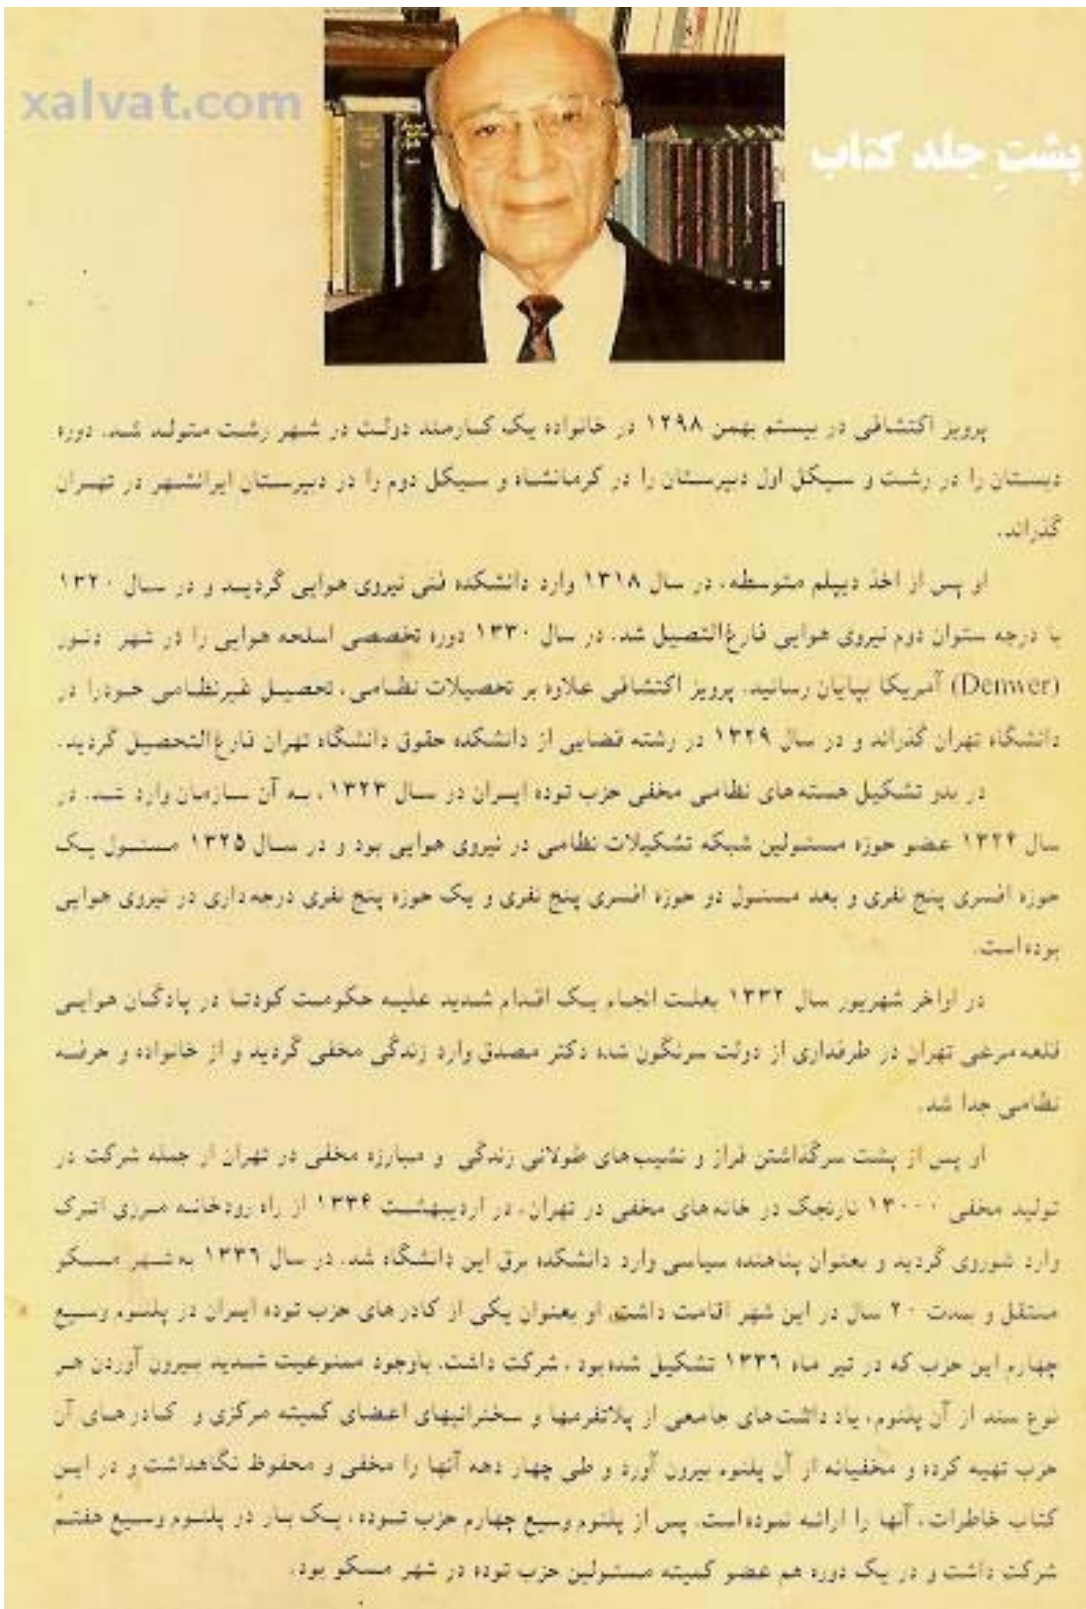 xalvat.com
پشتِ جلد کتاب
پرویز اکتشافی در بیستم بهمن ۱۲۹۸ در خانواده یک کارمند دولت در شهر رشت متولد شد. دوره
دبستان را در رشت و سیکل اول دبیرستان را در کرمانشاه و سیکل دوم را در دبیرستان ایرانشهر در تهران
گذراند.
او پس از اخذ دیپلم متوسطه، در سال ۱۳۱۸ وارد دانشکده فنی نیروی هوایی گردید و در سال ۱۳۲۰
با درجه ستوان دوم نیروی هوایی فارغ‌التصیل شد. در سال ۱۳۳۰ دوره تخصصی اسلحه هوایی را در شهر دنور
(Denwer) آمریکا بپایان رسانید. پرویز اکتشافی علاوه بر تحصیلات نظامی، تحصیل غیرنظامی خودرا در
دانشگاه تهران گذراند و در سال ۱۳۲۹ در رشته قضایی از دانشکده حقوق دانشگاه تهران فارغ‌التحصیل گردید.
در بدو تشکیل هسته‌های نظامی مخفی حزب توده ایران در سال ۱۳۲۳، به آن سازمان وارد شد. در
سال ۱۳۲۴ عضو حوزه مسئولین شبکه تشکیلات نظامی در نیروی هوایی بود و در سال ۱۳۲۵ مسئول یک
حوزه افسری پنج نفری و بعد مسئول دو حوزه افسری پنج نفری و یک حوزه پنج نفری درجه‌داری در نیروی هوایی
بوده‌است.
در اواخر شهریور سال ۱۳۳۲ بعلت انجام یک اقدام شدید علیه حکومت کودتا در پادگان هوایی
قلعه‌مرغی تهران در طرفداری از دولت سرنگون شده دکتر مصدق وارد زندگی مخفی گردید و از خانواده و حرفه
نظامی جدا شد.
او پس از پشت سرگذاشتن فراز و نشیب‌های طولانی زندگی و مبارزه مخفی در تهران از جمله شرکت در
تولید مخفی ۱۳۰۰۰ نارنجک در خانه‌های مخفی در تهران، در اردیبهشت ۱۳۳۴ از راه رودخانه مرزی اترک
وارد شوروی گردید و بعنوان پناهنده سیاسی وارد دانشکده برق این دانشگاه شد. در سال ۱۳۳۶ به‌شهر مسکو
منتقل و بمدت ۲۰ سال در این شهر اقامت داشت. او بعنوان یکی از کادرهای حزب توده ایران در پلنوم وسیع
چهارم این حزب که در تیر ماه ۱۳۳۶ تشکیل شده‌بود، شرکت داشت. باوجود ممنوعیت شدید بیرون آوردن هر
نوع سند از آن پلنوم، یاد داشت‌های جامعی از پلاتفرمها و سخنرانیهای اعضای کمیته مرکزی و کادرهای آن
حزب تهیه کرده و مخفیانه از آن پلنوم بیرون آورد و طی چهار دهه آنها را مخفی و محفوظ نگاهداشت و در این
کتاب خاطرات، آنها را ارائه نموده‌است. پس از پلنوم وسیع چهارم حزب توده، یک بار در پلنوم وسیع هفتم
شرکت داشت و در یک دوره هم عضو کمیته مسئولین حزب توده در شهر مسکو بود.